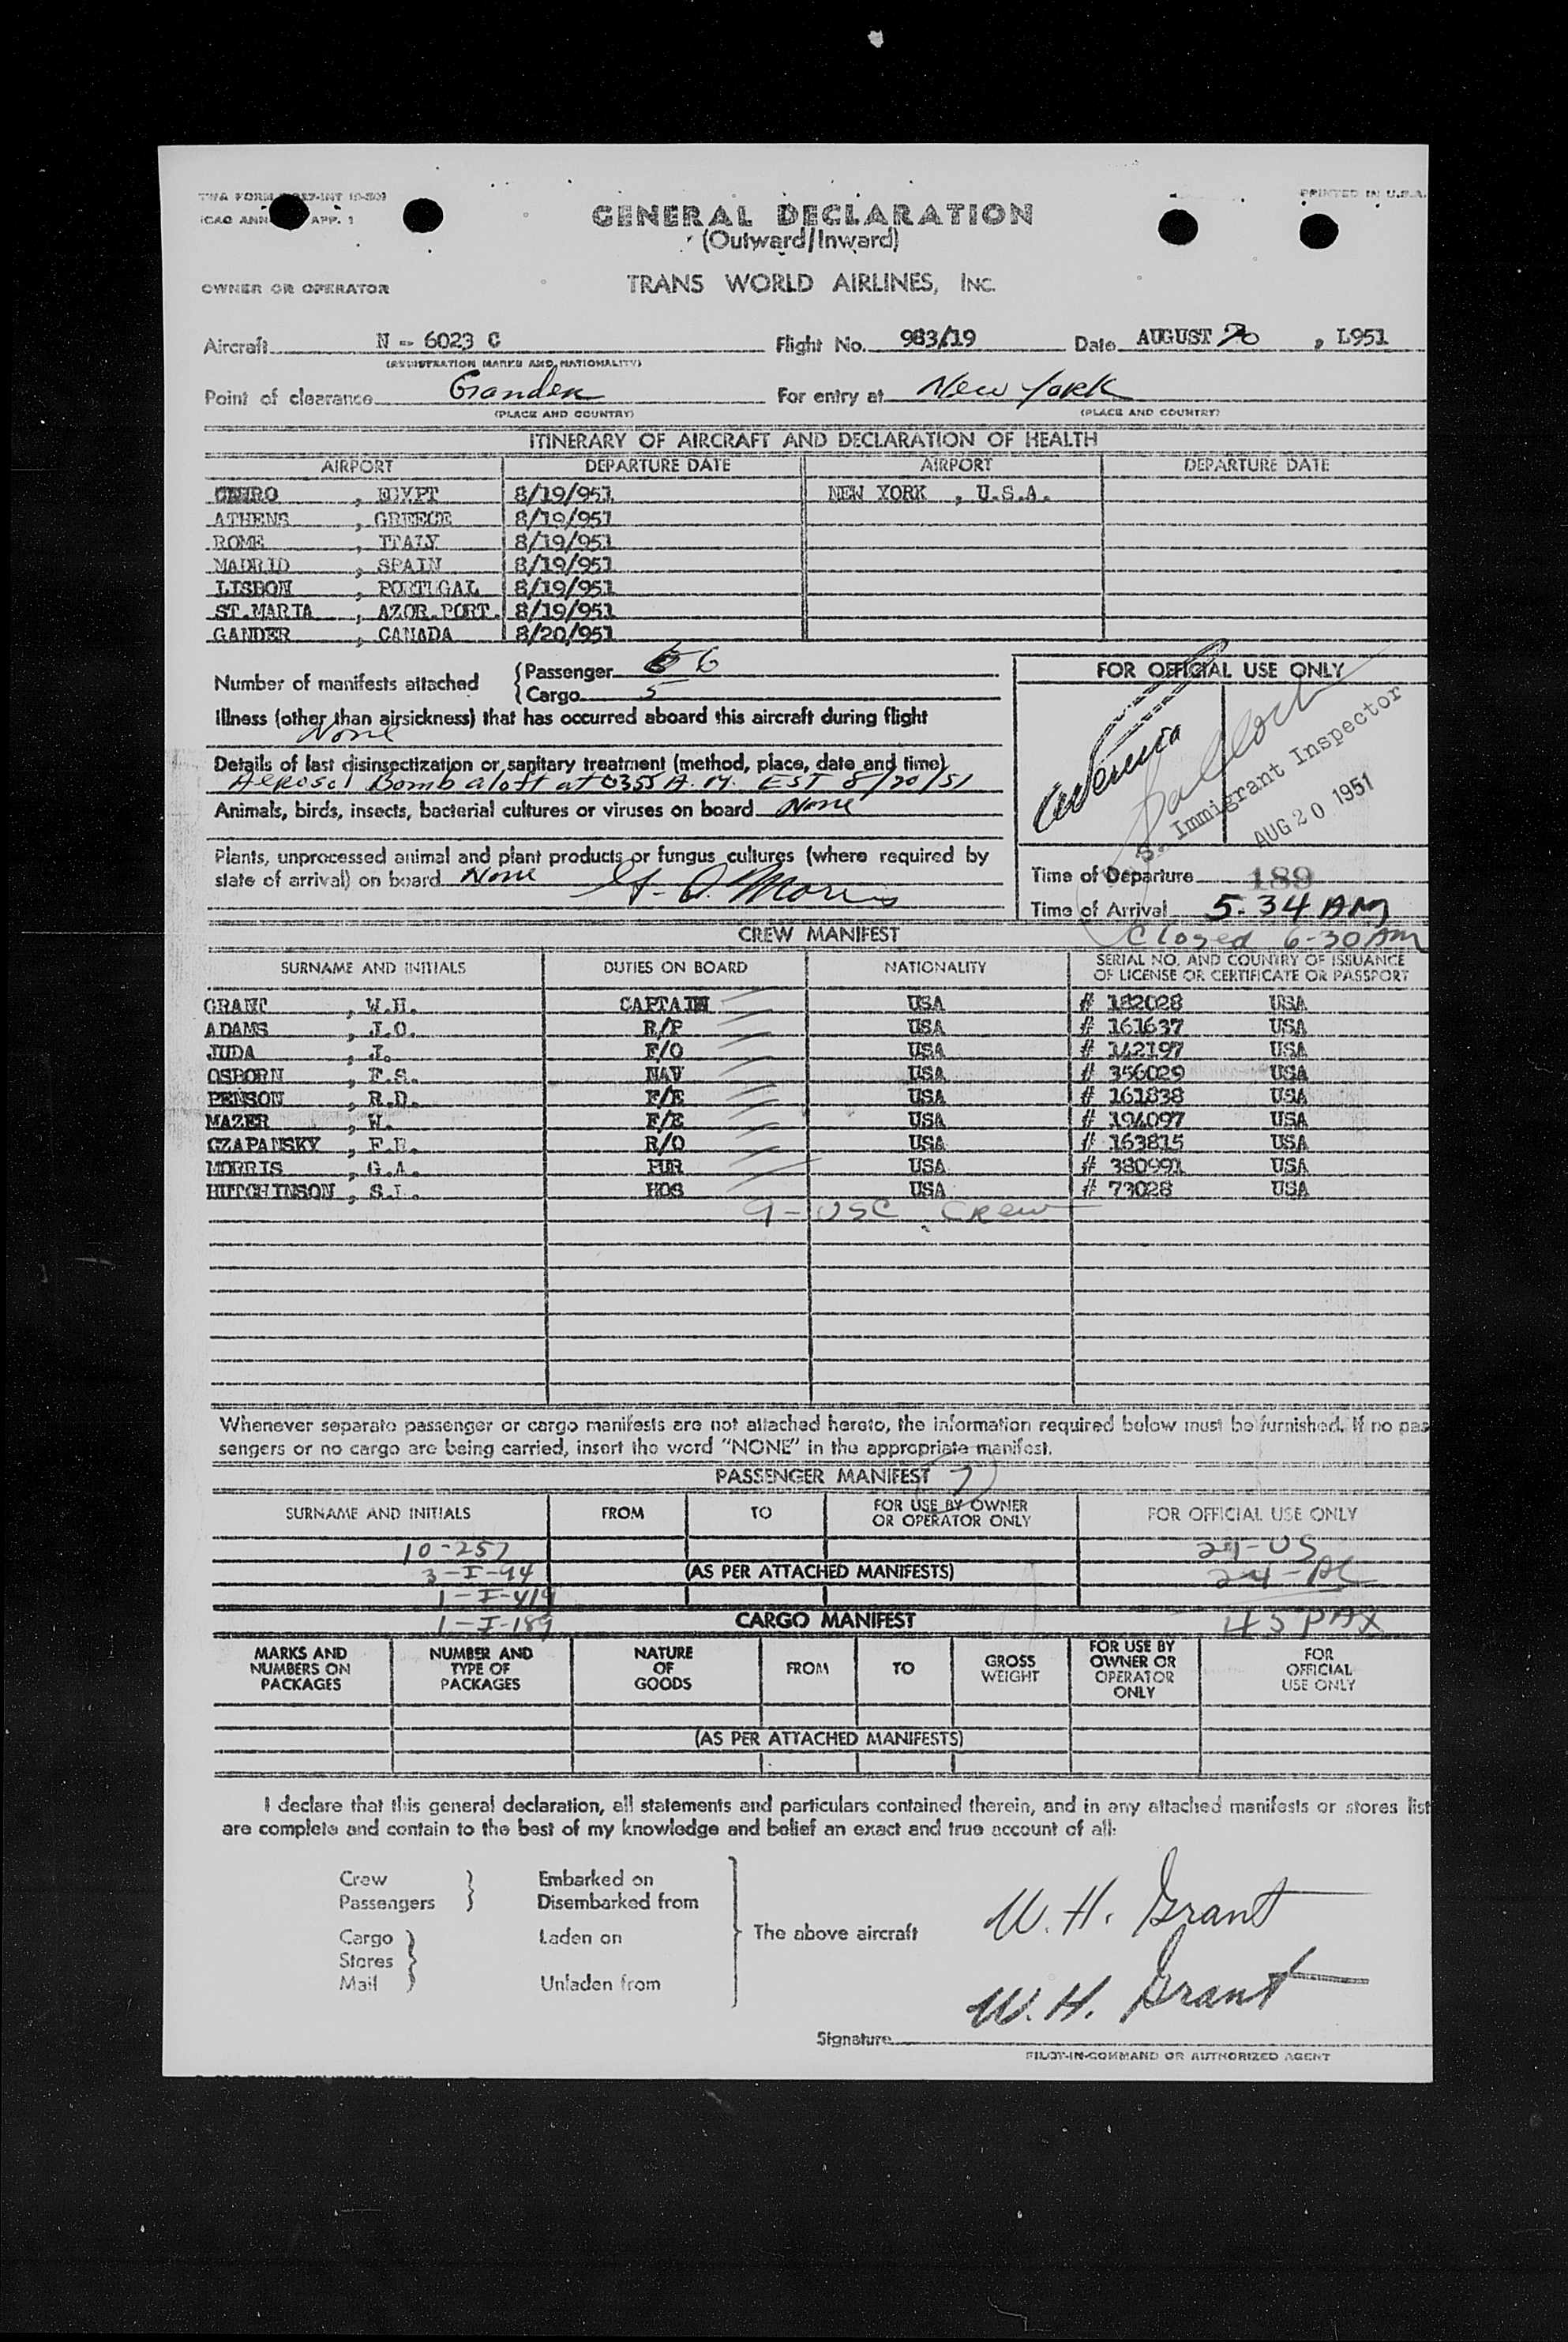 PRINTED IN U.S.A.
APP. 1
GENERAL DECLARATION
(Outward/Inward)
OWNER OR OPERATOR
TRANS WORLD AIRLINES, INC.
Aircraft N -- 6023 C Flight No. 983/19 Date AUGUST 20, L951
(REGISTRATION MARKS AND NATIONALITY)
Point of clearance Gander For entry at New York
(PLACE AND COUNTRY) (PLACE AND COUNTRY)
ITINERARY OF AIRCRAFT AND DECLARATION OF HEALTH
AIRPORT DEPARTURE DATE AIRPORT DEPARTURE DATE
, EGYPT 8/19/951 NEW YORK , U.S.A.
ATHENS , GREECE 8/19/951
ROME , ITALY 8/19/951
MADRID , SPAIN 8/19/951
LISBON , PORTUGAL 8/19/951
ST.MARIA , AZOR.PORT. 8/19/951
GANDER , CANADA 8/20/951
Number of manifests attached {Passenger 6
{Cargo 5
FOR OFFICIAL USE ONLY
Illness (other than airsickness) that has occurred aboard this aircraft during flight
None
Details of last disinsectization or sanitary treatment (method, place, date and time)
Aerosol Bomb aloft at 0355 A.M. EST 8/20/51
Animals, birds, insects, bacterial cultures or viruses on board None
Immigrant Inspector
AUG 20 1951
Plants, unprocessed animal and plant products or fungus cultures (where required by
state of arrival) on board None
Time of Departure 189
Time of Arrival 5.34 AM
Closed 6-30 AM
CREW MANIFEST
SURNAME AND INITIALS DUTIES ON BOARD NATIONALITY SERIAL NO. AND COUNTRY OF ISSUANCE
OF LICENSE OR CERTIFICATE OR PASSPORT
GRANT , W.H. CAPTAIN USA # 182028 USA
ADAMS , J.O. R/P USA # 161637 USA
JUDA , J. F/O USA # 142197 USA
OSBORN , F.S. NAV USA # 356029 USA
PENSON , R.D. F/E USA # 161838 USA
MAZER , W. F/E USA # 194097 USA
CZAPANSKY , F.E. R/O USA # 163815 USA
MORRIS , G.A. PUR USA # 380991 USA
HUTCHINSON , S.L. HOS USA # 73028 USA
9-USC Crew
Whenever separate passenger or cargo manifests are not attached hereto, the information required below must be furnished. If no pas
sengers or no cargo are being carried, insert the word "NONE" in the appropriate manifest.
PASSENGER MANIFEST 7
SURNAME AND INITIALS FROM TO FOR USE BY OWNER
OR OPERATOR ONLY FOR OFFICIAL USE ONLY
10-257
3-I-94 (AS PER ATTACHED MANIFESTS)
1-I-419
1-I-189 CARGO MANIFEST
MARKS AND
NUMBERS ON
PACKAGES
NUMBER AND
TYPE OF
PACKAGES
NATURE
OF
GOODS
FROM
TO
GROSS
WEIGHT
FOR USE BY
OWNER OR
OPERATOR
ONLY
FOR
OFFICIAL
USE ONLY
(AS PER ATTACHED MANIFESTS)
I declare that this general declaration, all statements and particulars contained therein, and in any attached manifests or stores list
are complete and contain to the best of my knowledge and belief an exact and true account of all:
Crew } Embarked on
Passengers } Disembarked from
Cargo } Laden on
Stores
Mail } Unladen from
The above aircraft
W. H. Grant
W. H. Grant
Signature
PILOT-IN-COMMAND OR AUTHORIZED AGENT